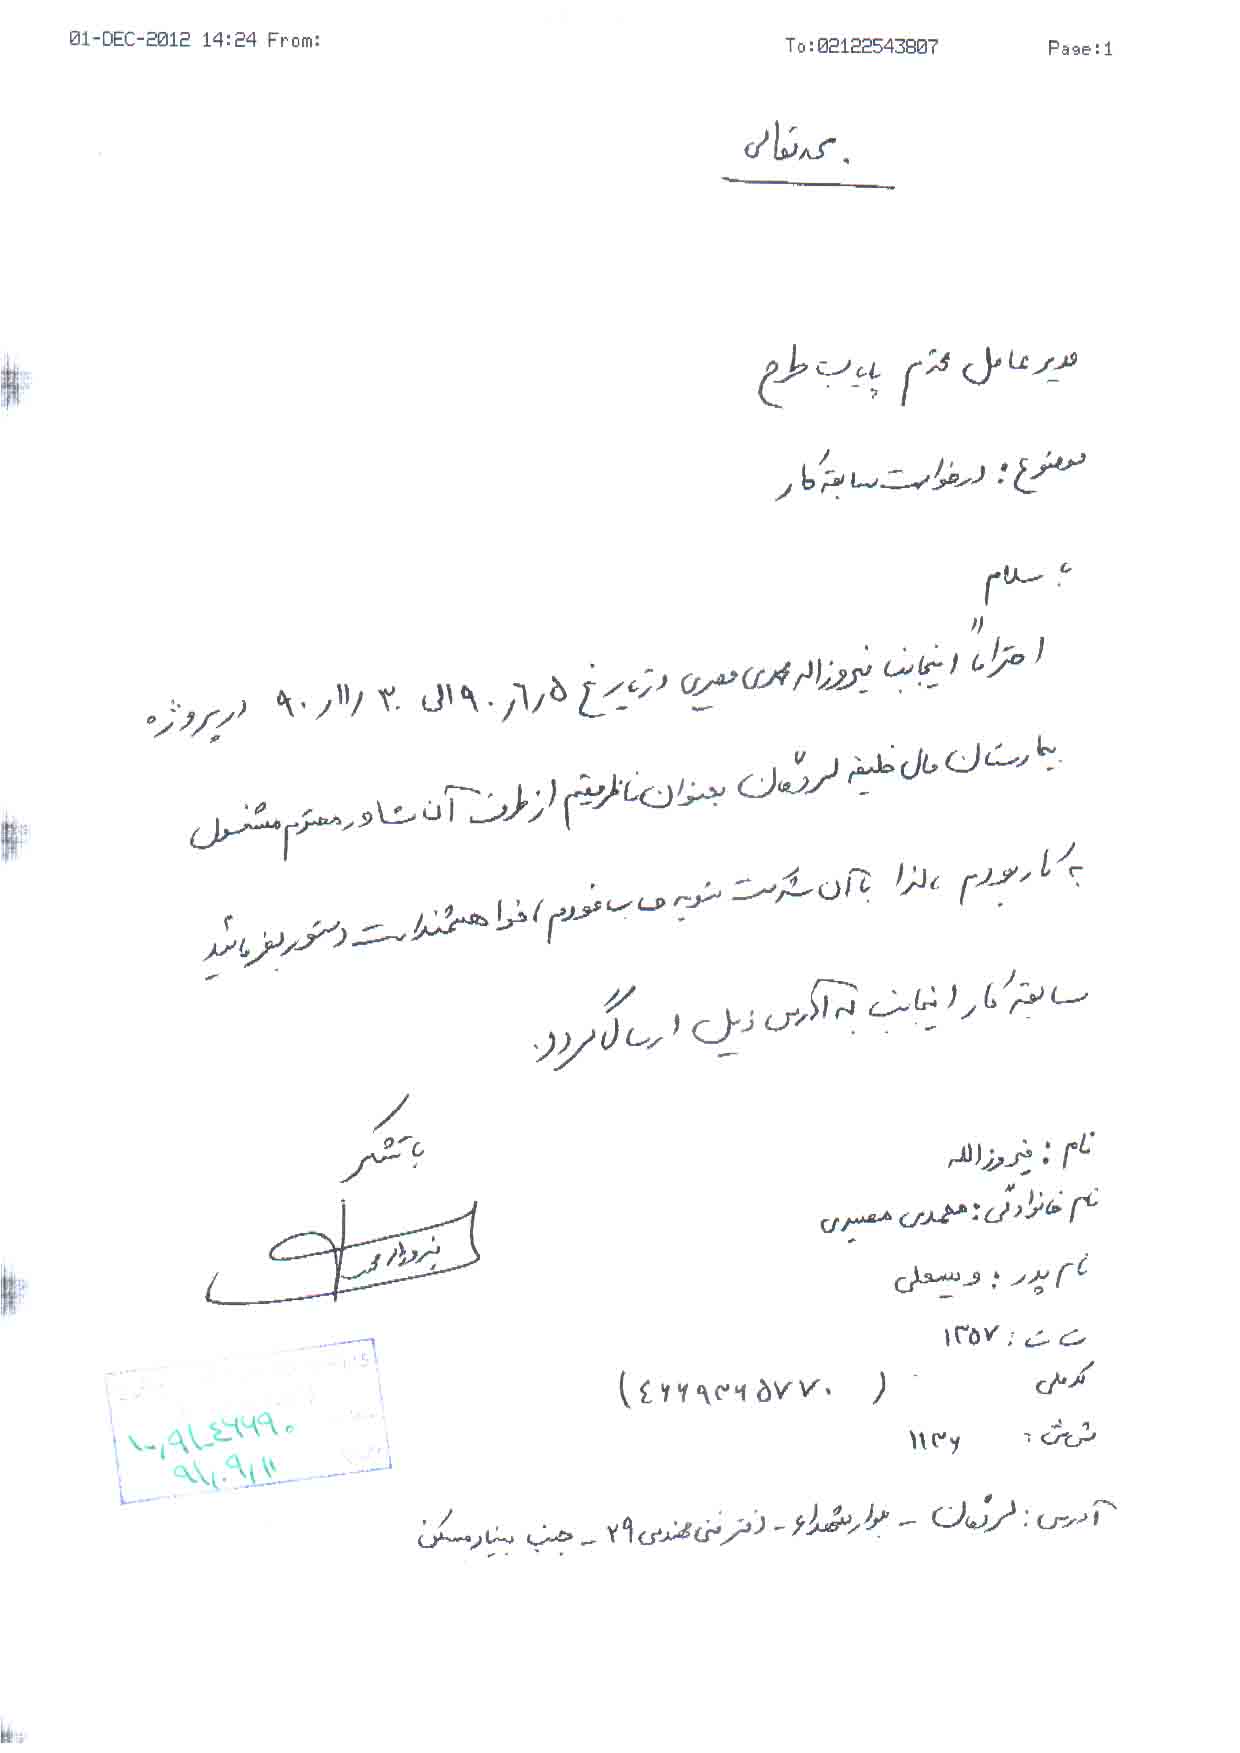 01-DEC-2012 14:24 From: To:02122543807 Page:1
بسمه تعالی
مدیر عامل محترم پایاب طرح
موضوع: درخواست سابقه کار
با سلام
احتراماً اینجانب فیروزاله محمدی معصیری از تاریخ ۹۰/۶/۵ الی ۹۰/۱۱/۳۰ در پروژه
بیمارستان مال خلیفه لردگان بعنوان ناظر مقیم از طرف آن مشاور محترم مشغول
به کار بودم، لذا با آن شرکت تسویه حساب نمودم، خواهشمند است دستور بفرمائید
سابقه کار اینجانب به آدرس ذیل ارسال گردد.
با تشکر
فیروزاله محمدی
نام: فیروزالله
نام خانوادگی: محمدی معصیری
نام پدر: ویسعلی
ت ت: ۱۳۵۷
کد ملی (۴۶۶۹۳۶۵۷۷۰)
ش ش: ۱۱۳۶
۱۰/۹۱-۴۶۶۹۰
۹۱/۰۹/۱۱
آدرس: لردگان - بلوار شهداء - دفتر فنی مهندسی ۲۹ - جنب بنیاد مسکن